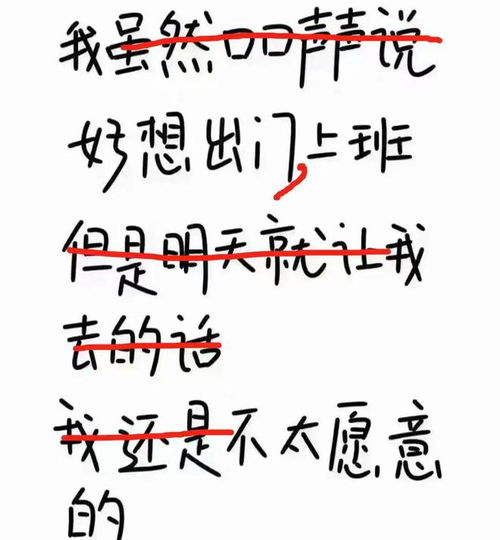 我虽然口口声声说
好想出门,上班
但是明天就让我
去的话
我还是不太愿意
的